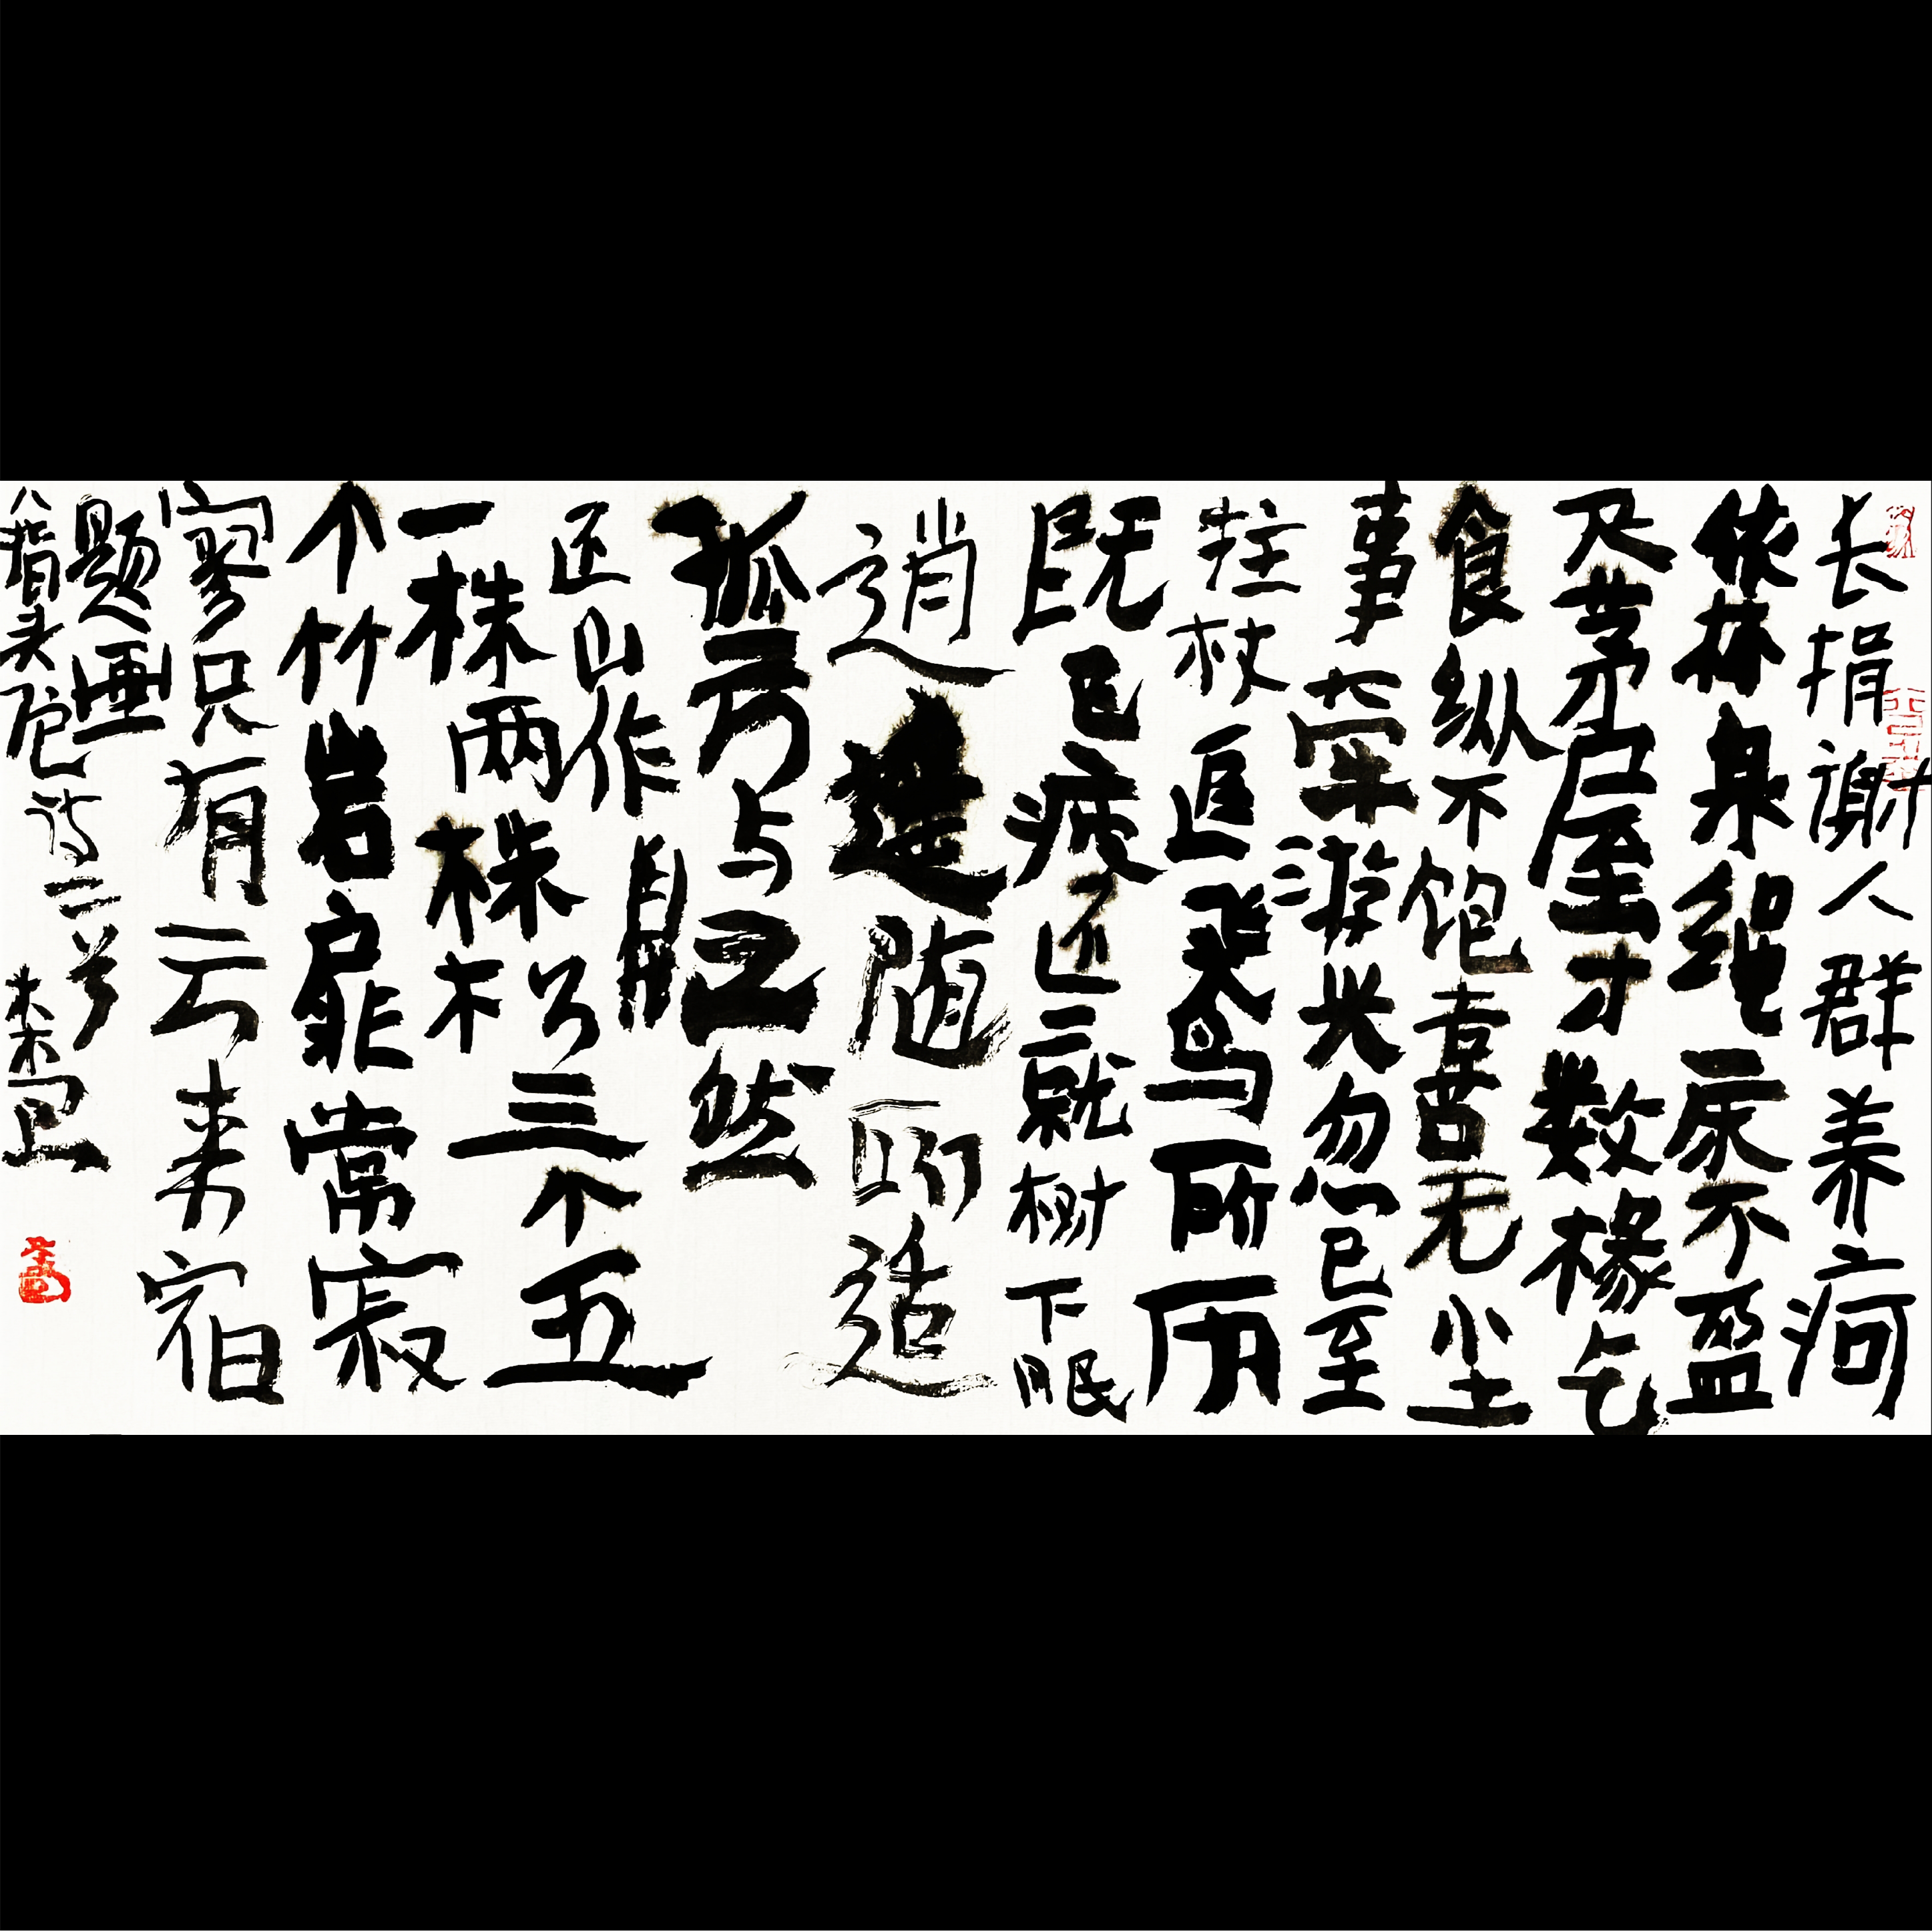 长捐谢人群养疴
依林泉绳床不盈
尺茅屋才数椽乞
食纵不饱喜无尘
事牵游兴忽已至
拄杖追飞鸢所历
既已疲还就树下眠
逍遥随所适
孤云与之然
山作
一株两株松三个五
个竹岩扉常寂
寥只有云来宿
题画
八指头陀诗二首